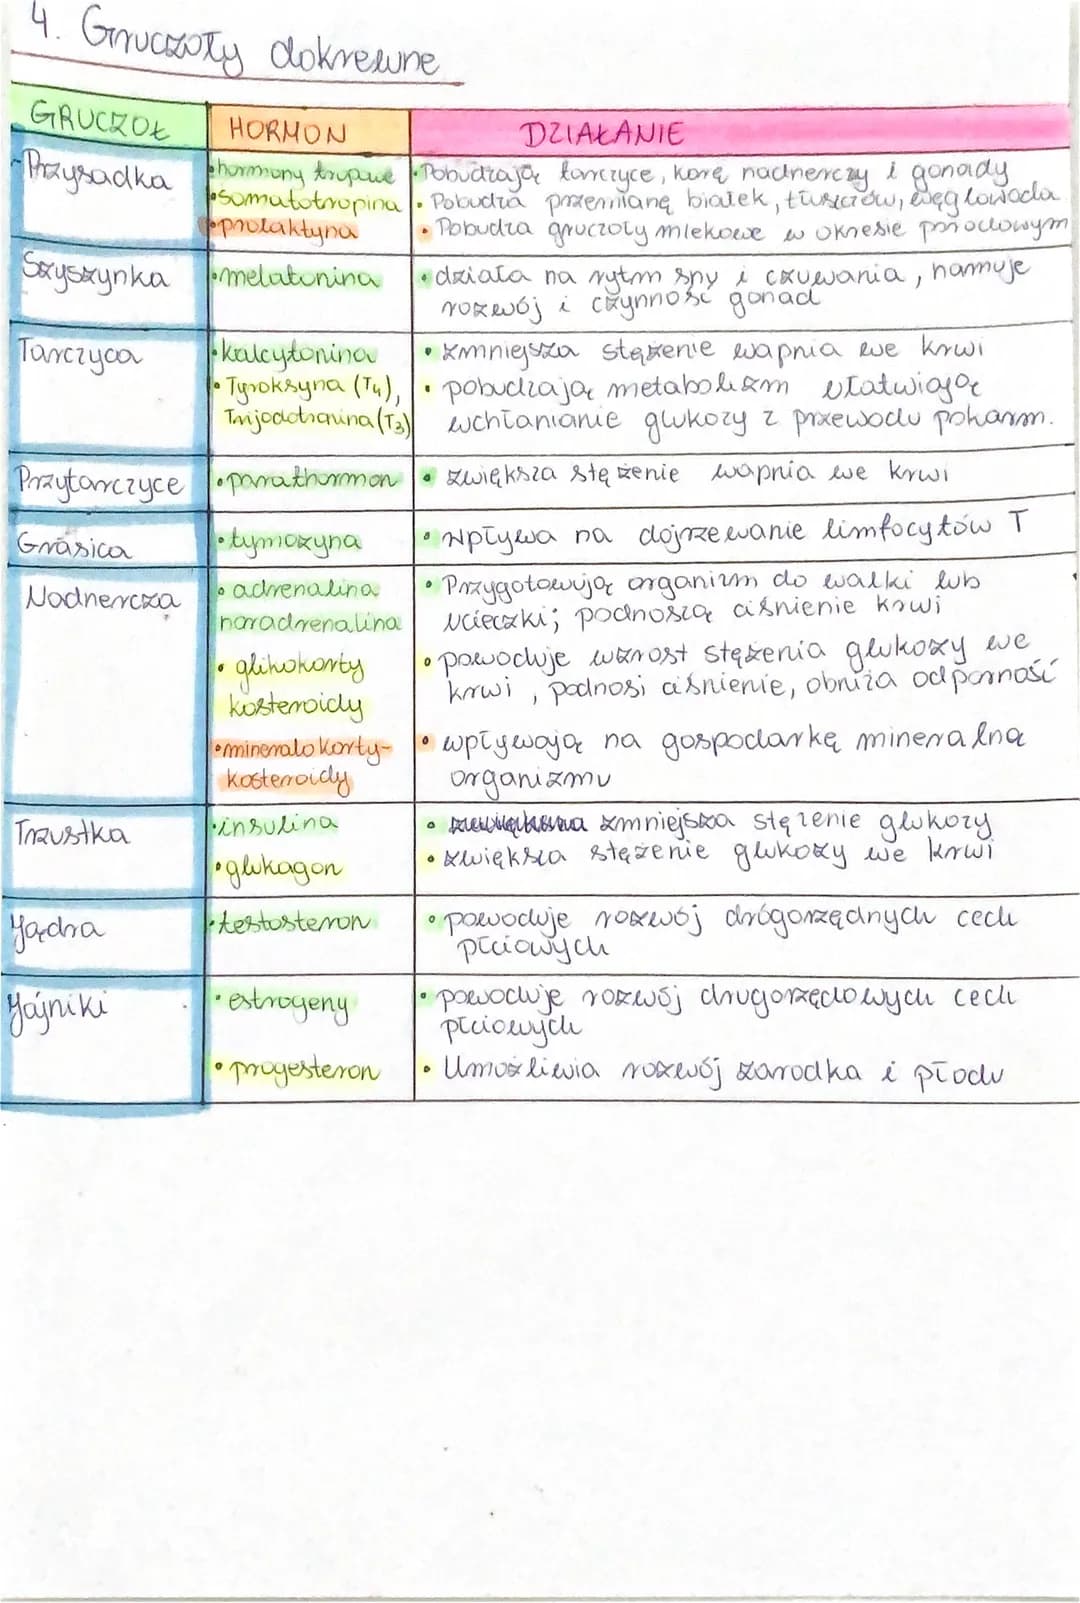 4. Gruczoły dokrewne
GRUCZOŁ HORMON DZIAŁANIE
Przysadka
•hormony tropowe
•Somatotropina
•prolaktyna
•Pobudzają tarczyce, korę nadnerczy i gonady
• Pobudza przemianę białek, tłuszczów, węglowoda
• Pobudza gruczoły mlekowe w okresie porodowym
Szyszynka
•melatonina
•działa na rytm sny i czuwania, hamuje
rozwój i czynność gonad
Tarczyca
•kalcytonina
•Tyroksyna (T4),
Trijodotronina (T3)
• zmniejsza stężenie wapnia we krwi
• pobudzają metabolizm ułatwiają
wchłanianie glukozy z przewodu pokarm.
Przytarczyce
•parathormon
• zwiększa stężenie wapnia we krwi
Grasica
•tymozyna
• Wpływa na dojrzewanie limfocytów T
Nadnercza
• adrenalina
noradrenalina
• glikokorty
kosteroidy
•mineralokorty-
kosteroidy
• Przygotowują organizm do walki lub
ucieczki; podnoszą ciśnienie krwi
• powoduje wzrost stężenia glukozy we
krwi, podnosi ciśnienie, obniża odporność
• wpływają na gospodarkę mineralną
organizmu
Trzustka
•insulina
•glukagon
• zmniejsza stężenie glukozy
• zwiększa stężenie glukozy we krwi
Jądra
•testosteron
• powoduje rozwój drógorzędnych cech
płciowych
Jajniki
• estrogeny
• progesteron
• powoduje rozwój drugorzędowych cech
płciowych
• Umożliwia rozwój zarodka i płodu